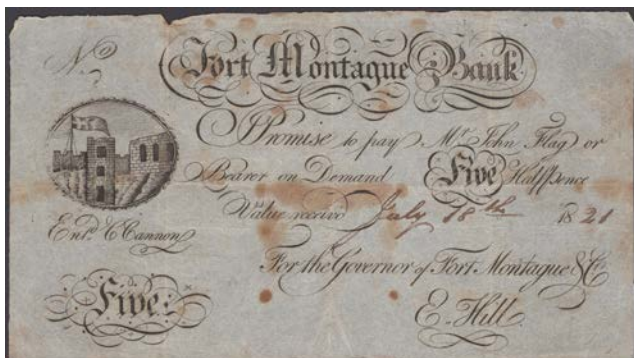 No
Fort Montague Bank
I Promise to pay Mr. John Flag or
Bearer on Demand Five Halfpence
Value receivd July 18th 1821
Entd. C Cannon
For the Governor of Fort Montague & Co.
Five
E. Hill